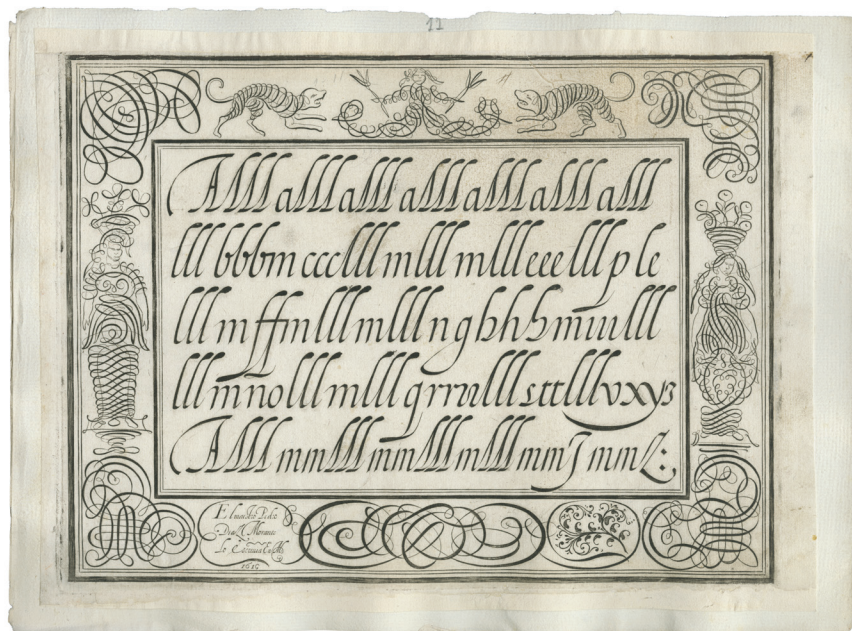 Alll alll alll alll alll alll alll
lll bbbm ccclll mlll mlll eee lll p le
lll mffmlllmlll n g hhh
lll mnolll mlll qrr lll sttlll vxyz
Alll mmlll mmlll mlll mm mm
El
Diaz Morante
lo Escriuia En